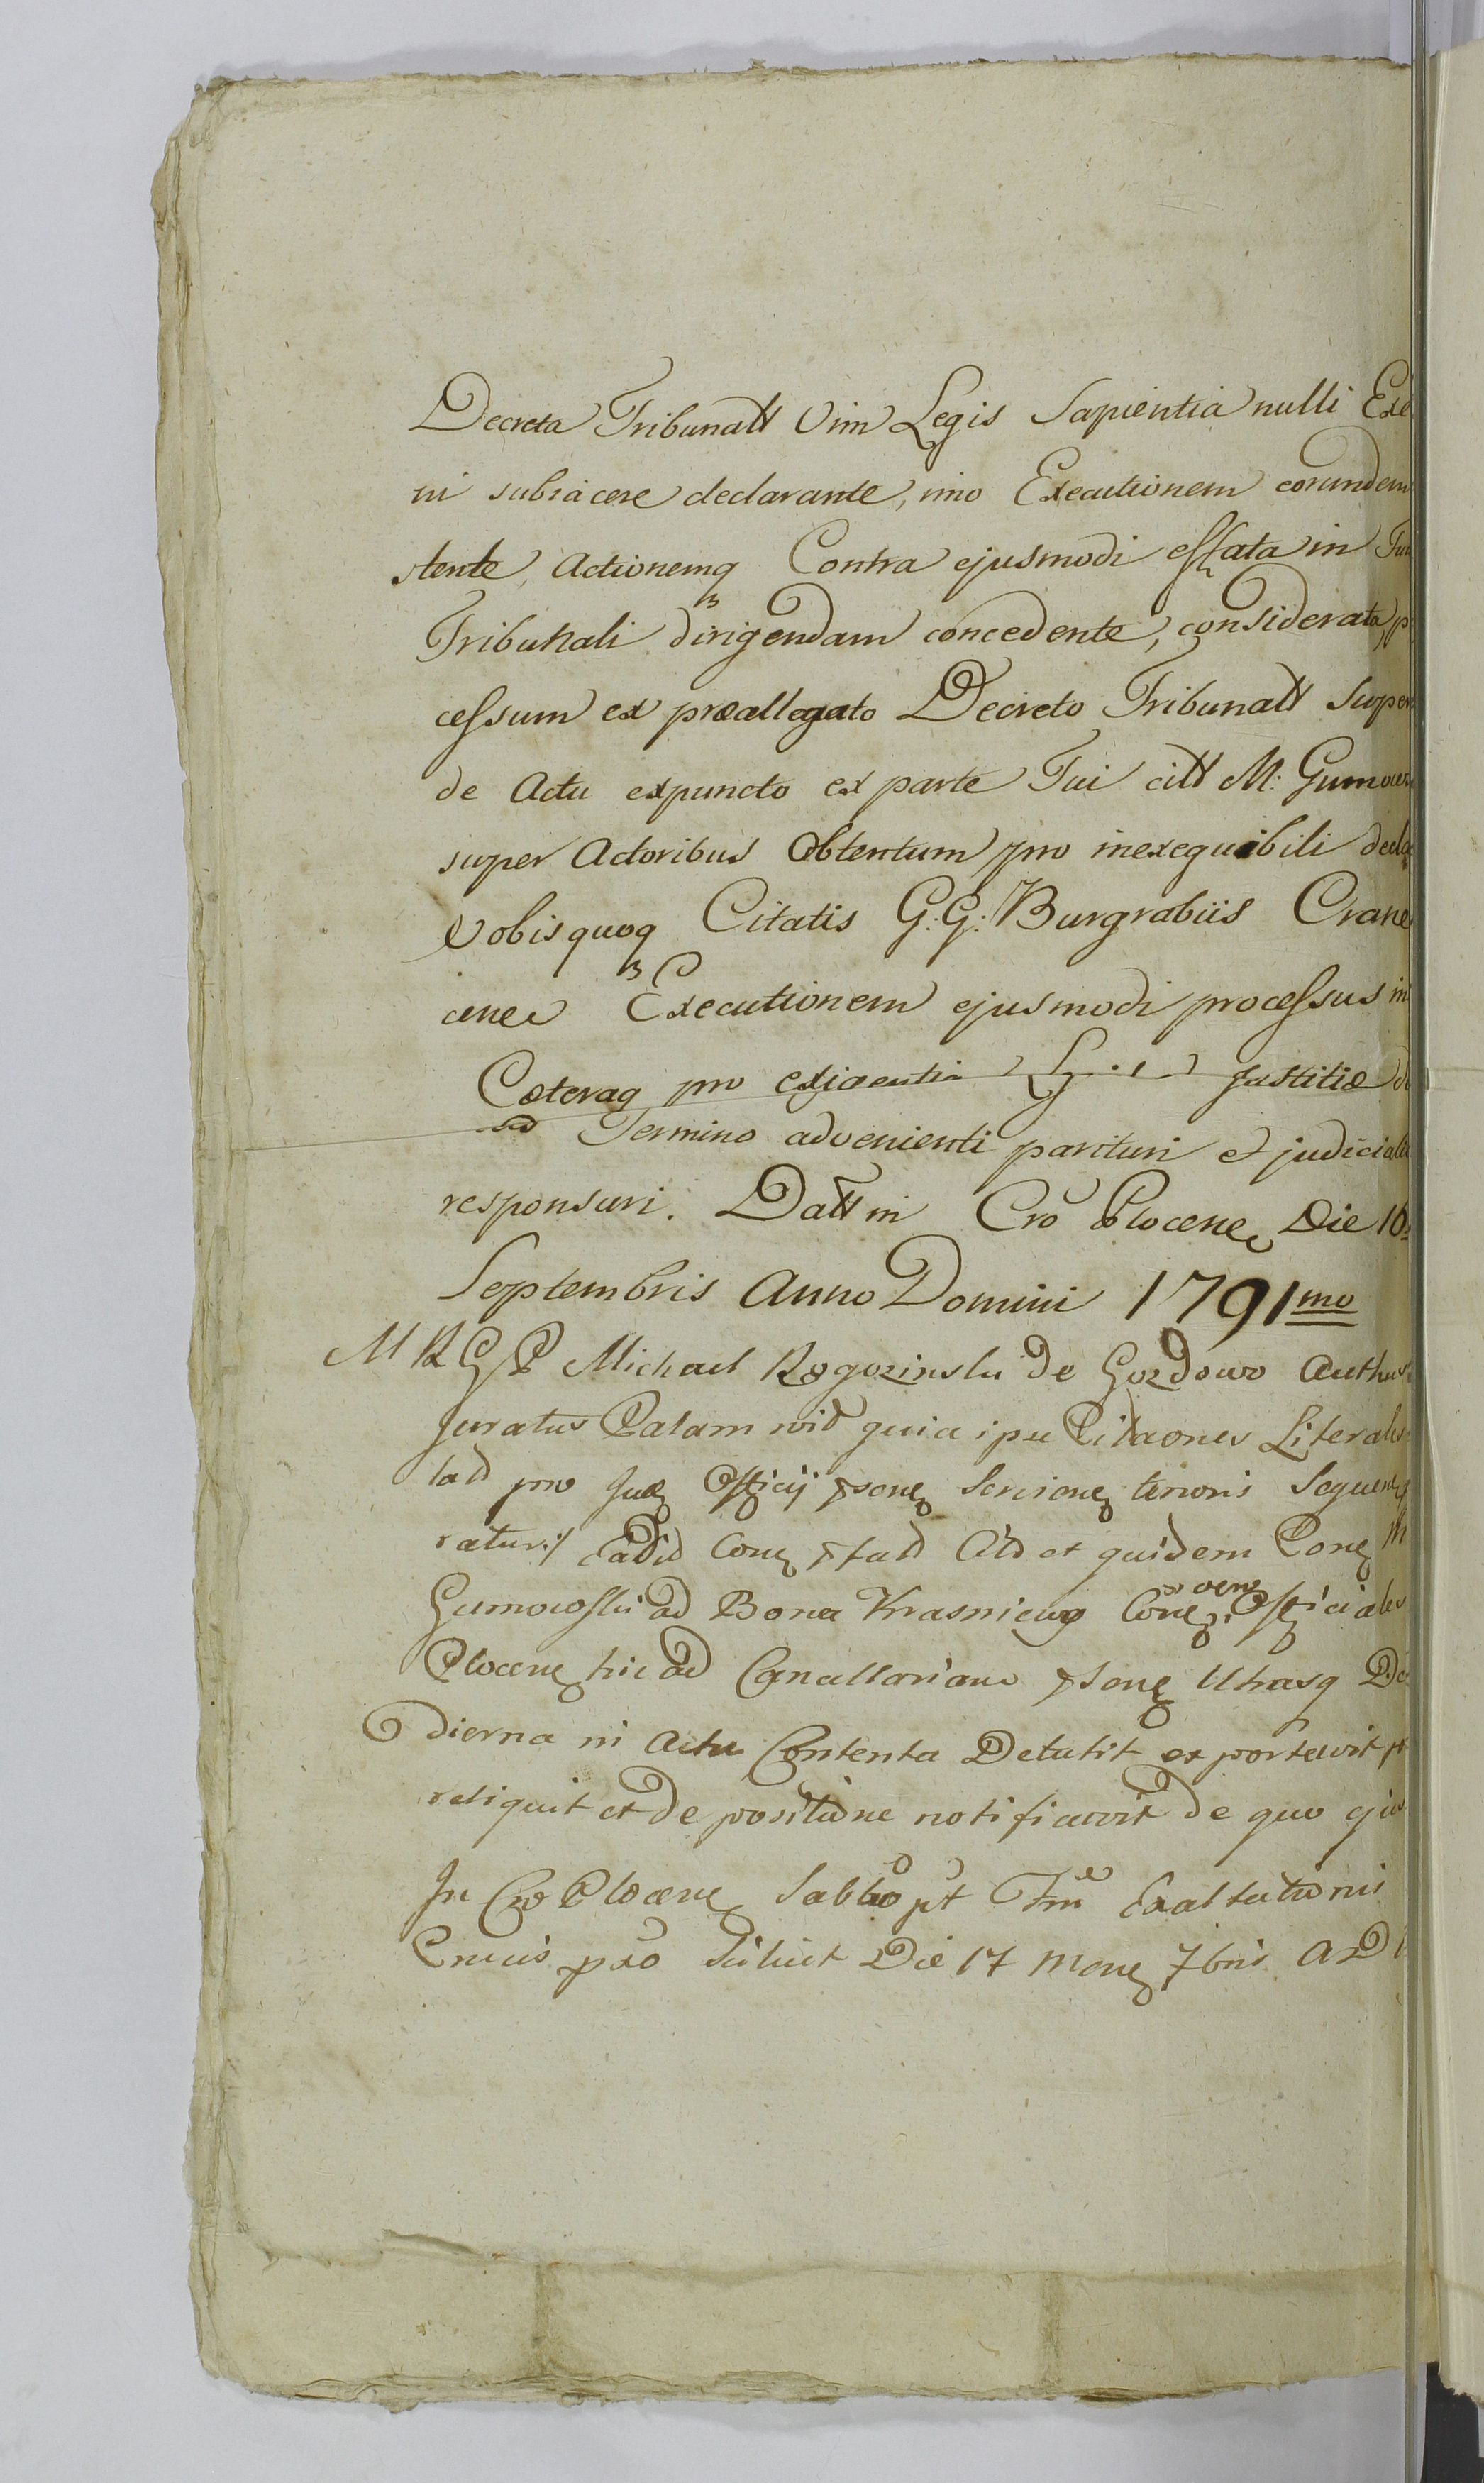 Decreta Tribunall Vim Legis Sapientia nulli Exe
ni subiacere declarante, imo Executionem eorundem
stente, Actionemq Contra ejusmodi effata in
Tribunali dirigendam concedente, considerata, p
cessum ex præallegato Decreto Tribunall Super
de Actu expuncto ex parte Tui citt M: Gumow
super Actoribus Obtentum pro inexequibili decla
Vobisquoq Citatis G: G: Burgrabiis Crane
cene Executionem ejusmodi processus in
Cæteraq pro exigentia Justitiæ d
Termino advenienti parituri et judicial
responsuri. Datt in Cro Plocene Die 10
Septembris Anno Domini 1791mo
M R G P Michael Rogozinski de Gozdowo Auth
Juratus Palam quia Literales
pro Officij tenoris Sequen
ratur:/ et quidem
Gumowski ad Bona Krasniewo vero Officiales
Plocene hic ad Cancellariam Utrasq De
dierna in Actu Contenta Detulit et portavit p
reliquit et de positione notificavit de quo
In Cro Plocene Sabbo pt Exaltationis
Crucis pxo Scilicet Die 17 Mens 7bris A D 1